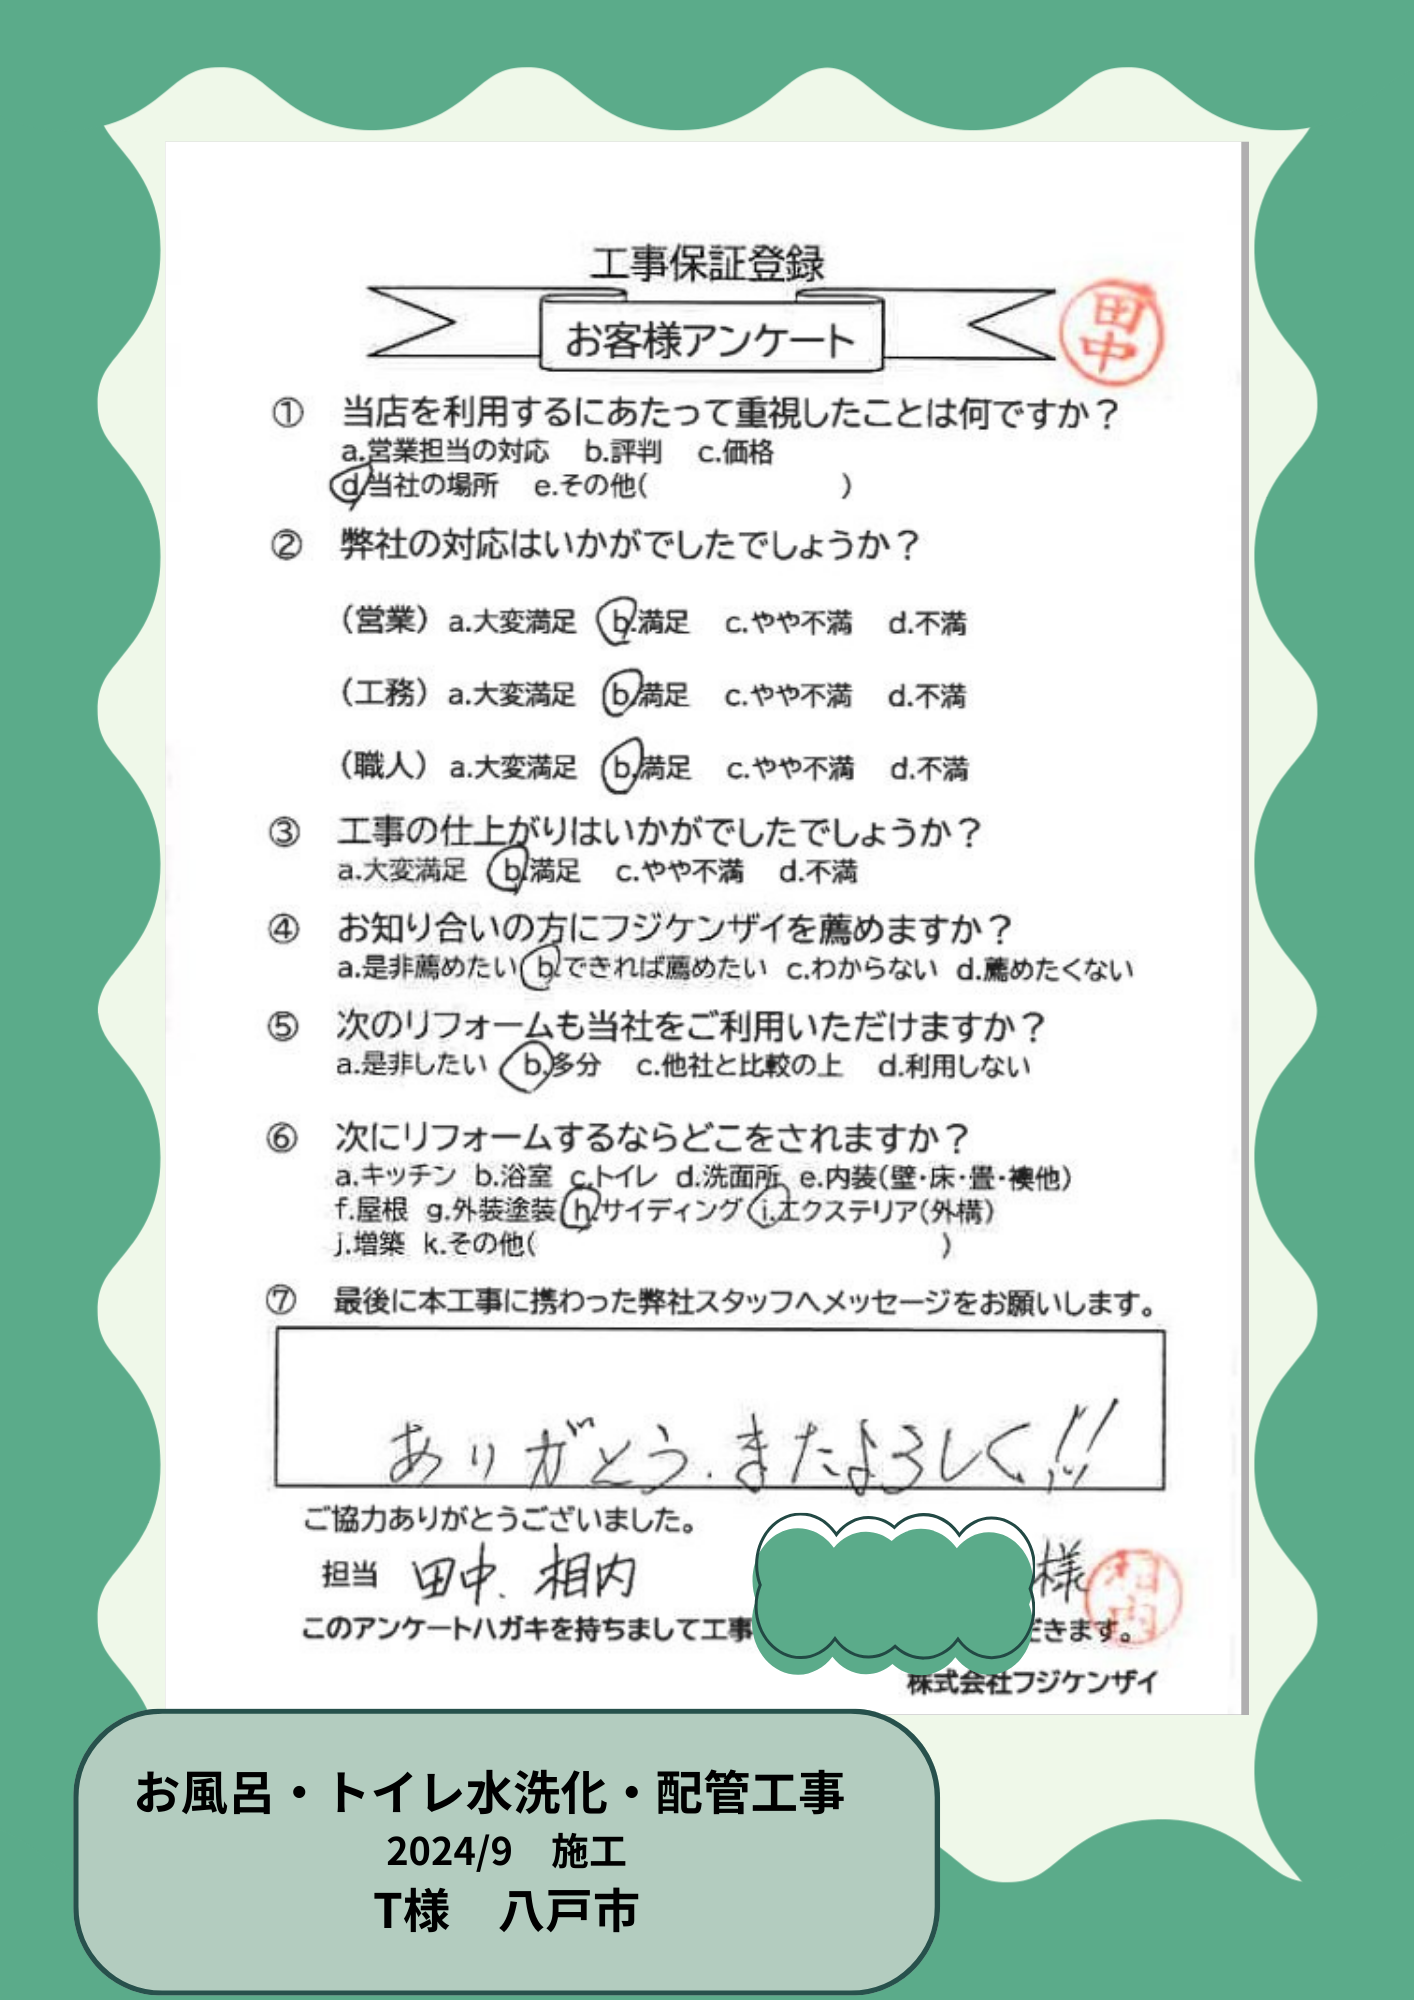 工事保証登録
お客様アンケート
田中
① 当店を利用するにあたって重視したことは何ですか？
a.営業担当の対応 b.評判 c.価格
d.当社の場所 e.その他( )
② 弊社の対応はいかがでしたでしょうか？
（営業）a.大変満足 b.満足 c.やや不満 d.不満
（工務）a.大変満足 b.満足 c.やや不満 d.不満
（職人）a.大変満足 b.満足 c.やや不満 d.不満
③ 工事の仕上がりはいかがでしたでしょうか？
a.大変満足 b.満足 c.やや不満 d.不満
④ お知り合いの方にフジケンザイを薦めますか？
a.是非薦めたい b.できれば薦めたい c.わからない d.薦めたくない
⑤ 次のリフォームも当社をご利用いただけますか？
a.是非したい b.多分 c.他社と比較の上 d.利用しない
⑥ 次にリフォームするならどこをされますか？
a.キッチン b.浴室 c.トイレ d.洗面所 e.内装(壁・床・畳・襖他)
f.屋根 g.外装塗装 h.サイディング i.エクステリア(外構)
j.増築 k.その他( )
⑦ 最後に本工事に携わった弊社スタッフへメッセージをお願いします。
ありがとう.またよろしく!!
ご協力ありがとうございました。
担当 田中. 相内 様
相内
このアンケートハガキを持ちまして工事 だきます。
株式会社フジケンザイ
お風呂・トイレ水洗化・配管工事
2024/9 施工
T様 八戸市